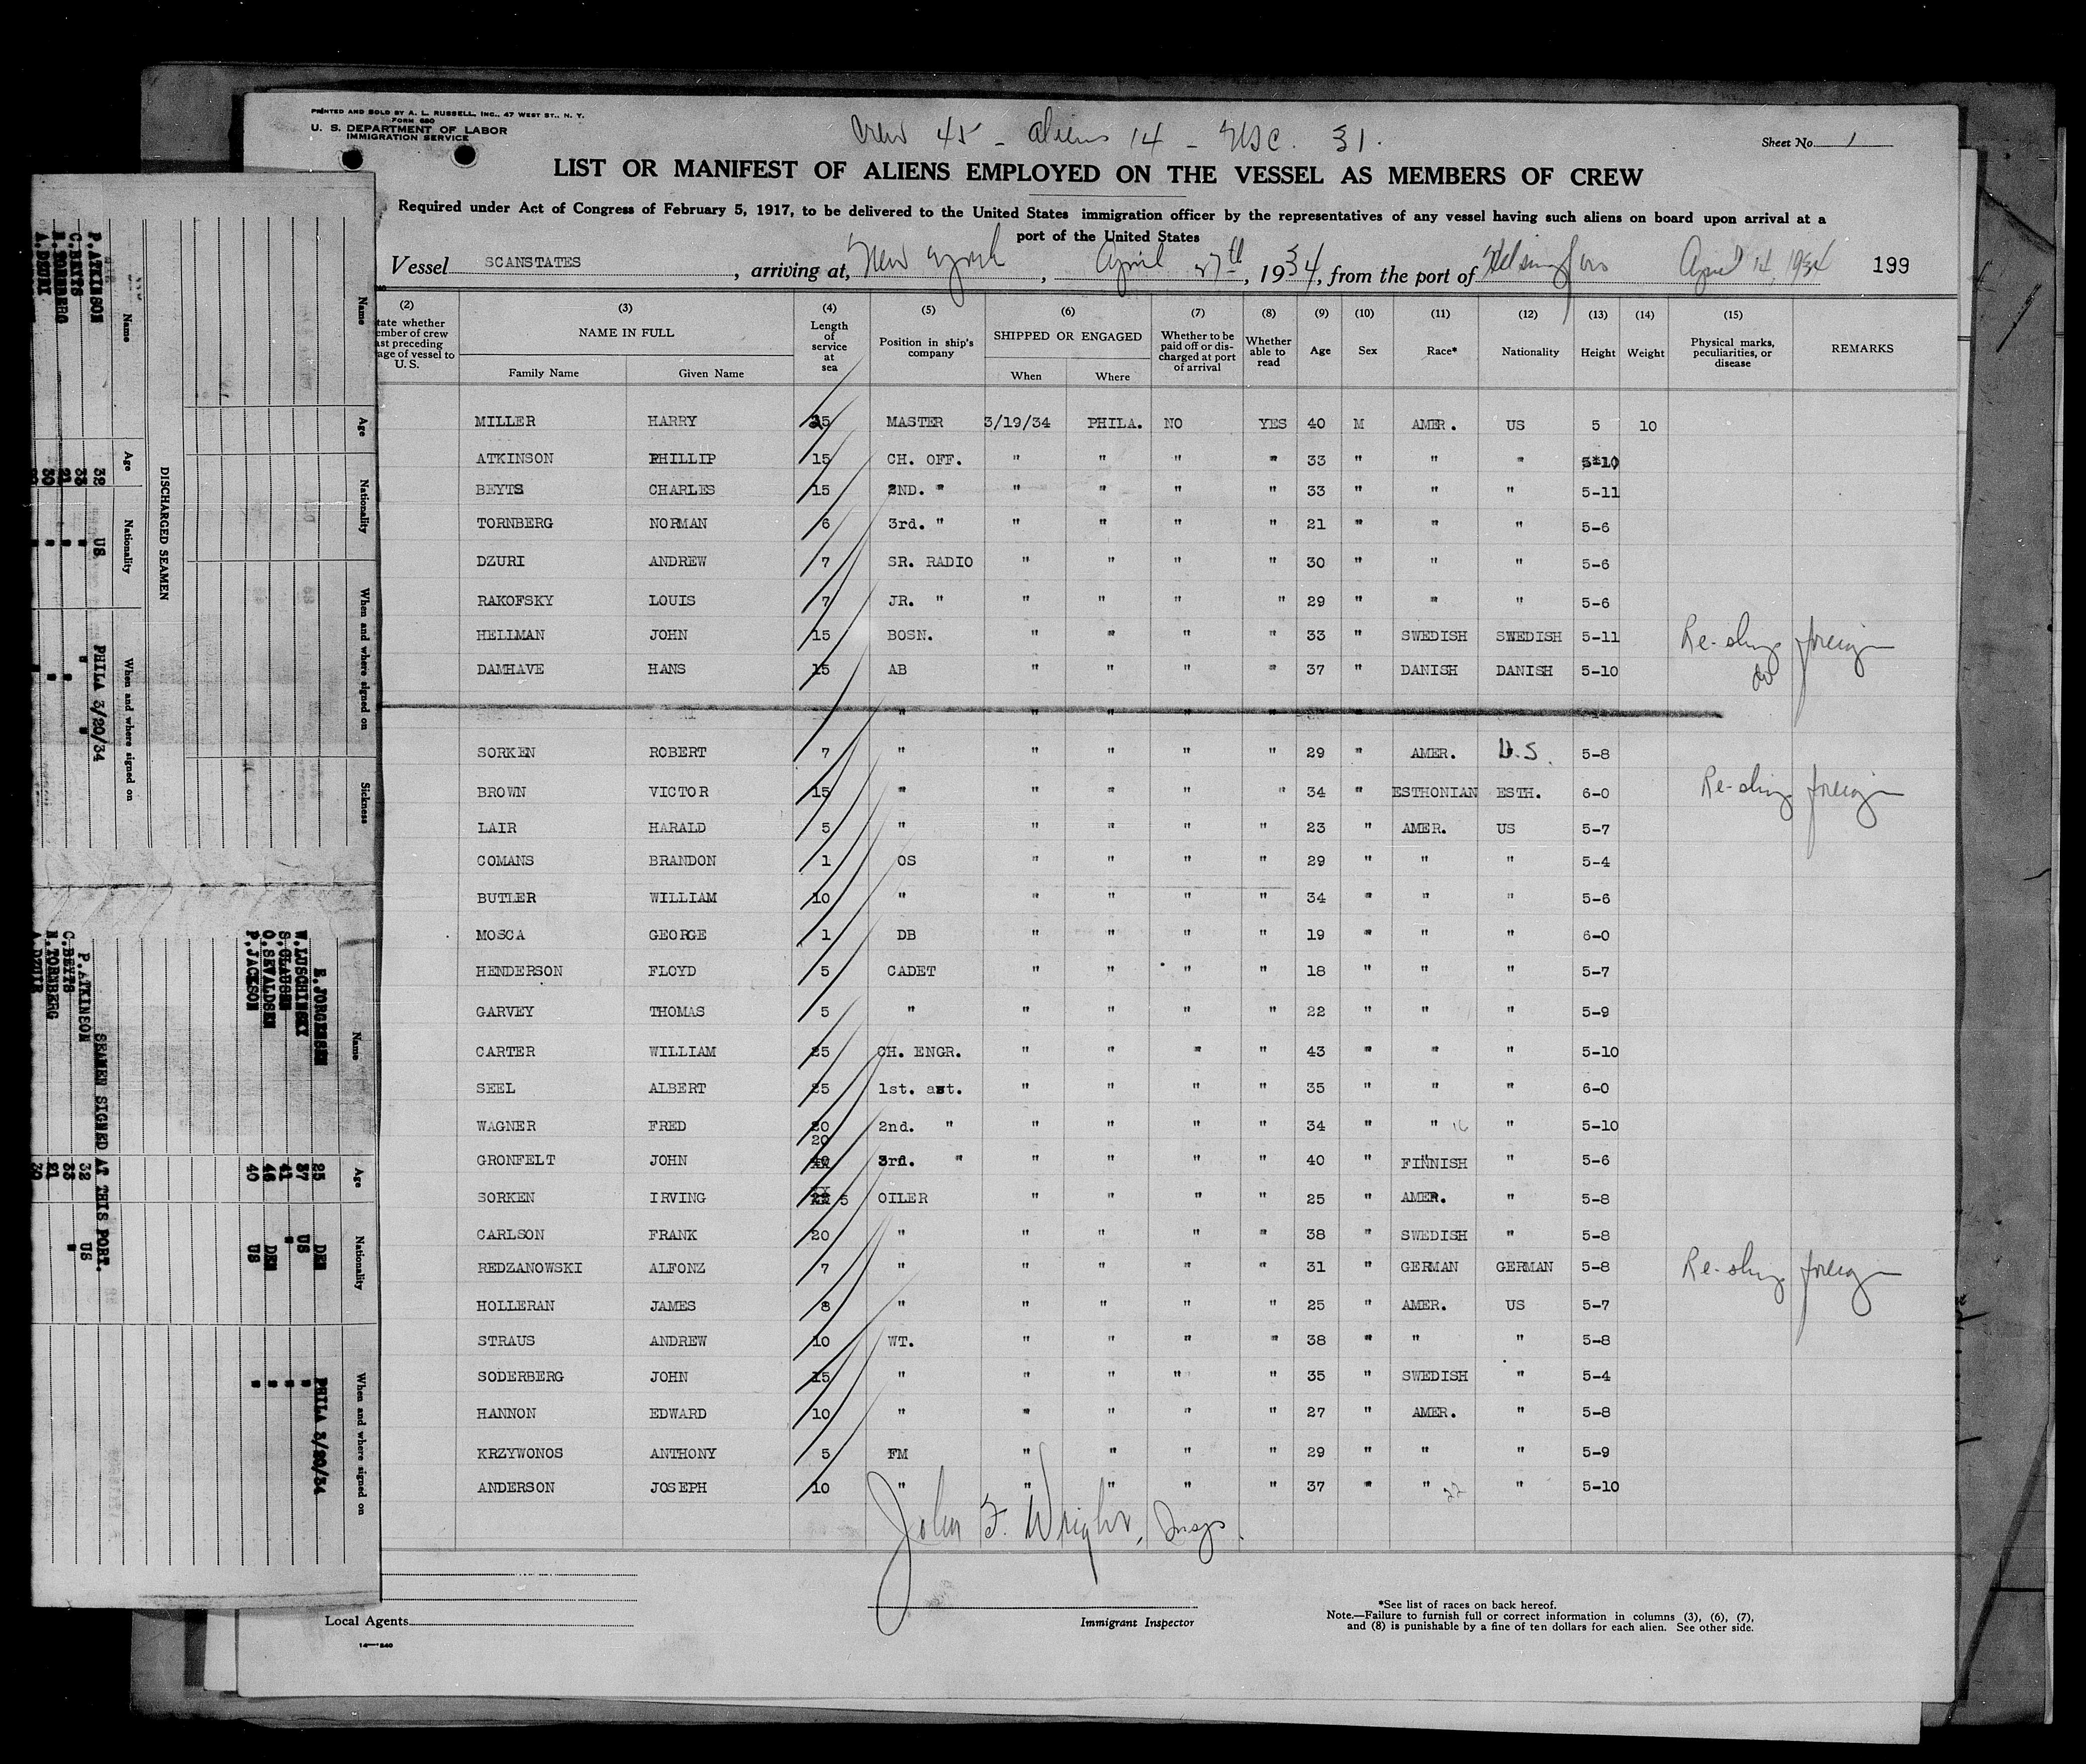 PRINTED AND SOLD BY A. L. RUSSELL, INC., 47 WEST ST., N. Y.
FORM 680
U. S. DEPARTMENT OF LABOR
IMMIGRATION SERVICE
Crew 45 - aliens 14 - USC. 31.
Sheet No. 1
LIST OR MANIFEST OF ALIENS EMPLOYED ON THE VESSEL AS MEMBERS OF CREW
Required under Act of Congress of February 5, 1917, to be delivered to the United States immigration officer by the representatives of any vessel having such aliens on board upon arrival at a
port of the United States
Vessel SCANSTATES, arriving at, New York, April 27th, 1934, from the port of Helsingfors April 14, 1934 199
(2) (3) (4) (5) (6) (7) (8) (9) (10) (11) (12) (13) (14) (15)
tate whether ember of crew ast preceding age of vessel to U. S. NAME IN FULL Length of service at sea Position in ship's company SHIPPED OR ENGAGED Whether to be paid off or discharged at port of arrival Whether able to read Age Sex Race* Nationality Height Weight Physical marks, peculiarities, or disease REMARKS
Family Name Given Name When Where
MILLER HARRY 25 MASTER 3/19/34 PHILA. NO YES 40 M AMER. US 5 10
ATKINSON PHILLIP 15 CH. OFF. " " " " 33 " " " 5-10
BEYTS CHARLES 15 2ND. " " " " " 33 " " " 5-11
TORNBERG NORMAN 6 3rd. " " " " " 21 " " " 5-6
DZURI ANDREW 7 SR. RADIO " " " " 30 " " " 5-6
RAKOFSKY LOUIS 7 JR. " " " " " 29 " " " 5-6
HELLMAN JOHN 15 BOSN. " " " " 33 " SWEDISH SWEDISH 5-11 Re-ship foreign
DAMHAVE HANS 15 AB " " " " 37 " DANISH DANISH 5-10 do
" " " " "
SORKEN ROBERT 7 " " " " " 29 " AMER. U.S. 5-8
BROWN VICTOR 15 " " " " " 34 " ESTHONIAN ESTH. 6-0 Re-ship foreign
LAIR HARALD 5 " " " " " 23 " AMER. US 5-7
COMANS BRANDON 1 OS " " " " 29 " " " 5-4
BUTLER WILLIAM 10 " " " " " 34 " " " 5-6
MOSCA GEORGE 1 DB " " " " 19 " " " 6-0
HENDERSON FLOYD 5 CADET " " " " 18 " " " 5-7
GARVEY THOMAS 5 " " " " " 22 " " " 5-9
CARTER WILLIAM 25 CH. ENGR. " " " " 43 " " " 5-10
SEEL ALBERT 25 1st. ast. " " " " 35 " " " 6-0
WAGNER FRED 20 2nd. " " " " " 34 " " 16 " 5-10
GRONFELT JOHN 20 3rd. " " " " " 40 " FINNISH " 5-6
SORKEN IRVING 5 OILER " " " " 25 " AMER. " 5-8
CARLSON FRANK 20 " " " " " 38 " SWEDISH " 5-8
REDZANOWSKI ALFONZ 7 " " " " " 31 " GERMAN GERMAN 5-8 Re-ship foreign
HOLLERAN JAMES 8 " " " " " 25 " AMER. US 5-7
STRAUS ANDREW 10 WT. " " " " 38 " " " 5-8
SODERBERG JOHN 15 " " " " " 35 " SWEDISH " 5-4
HANNON EDWARD 10 " " " " " 27 " AMER. " 5-8
KRZYWONOS ANTHONY 5 FM " " " " 29 " " " 5-9
ANDERSON JOSEPH 10 " " " " " 37 " " 22 " 5-10
John F. Wright, Insp.
Local Agents
Immigrant Inspector
*See list of races on back hereof.
Note.—Failure to furnish full or correct information in columns (3), (6), (7),
and (8) is punishable by a fine of ten dollars for each alien. See other side.
14—1240
Name Age Nationality When and where signed on Sickness
DISCHARGED SEAMEN
Name Age Nationality When and where signed on
P. ATKINSON 32 US PHILA 3/20/34
C. BEYTS 33 " "
N. TORNBERG 21 " "
A. DZURI 30 " "
Name Age Nationality When and where signed on
E. JORGENSEN 25 DEN PHILA 3/20/34
W. LUSCHINSKY 37 US "
S. CLAUSEN 41 " "
O. SEVALDSEN 46 DEN "
P. JACKSON 40 US "
SEAMEN SIGNED AT THIS PORT.
P. ATKINSON 32 US
C. BEYTS 33 "
N. TORNBERG 21
A. DZUIR 30